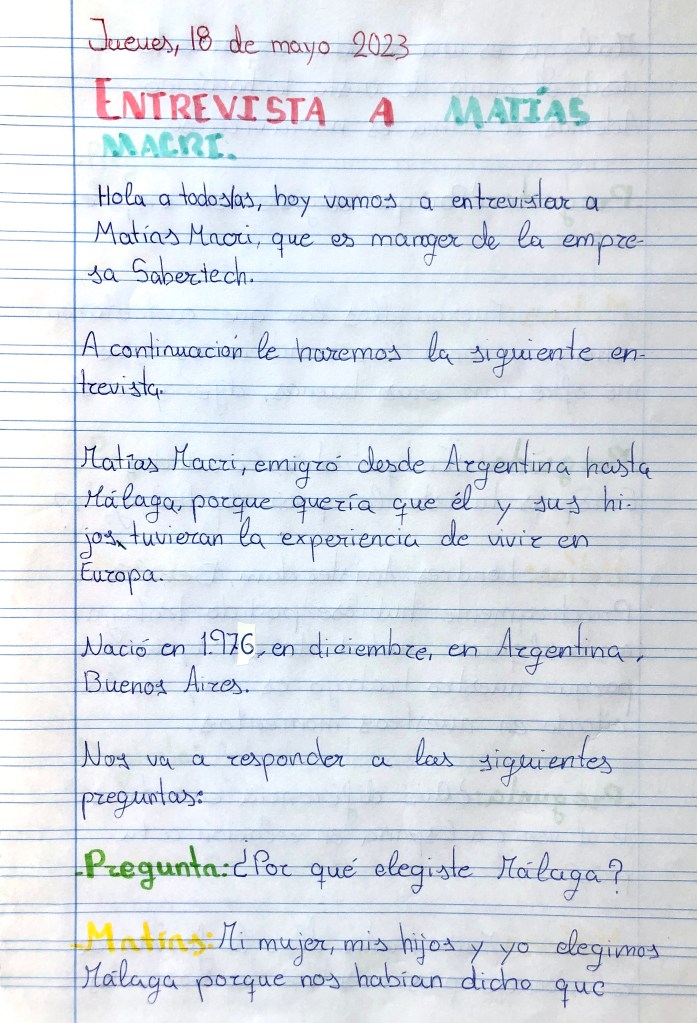 Jueves, 18 de mayo 2023
ENTREVISTA A MATÍAS
MACRI.
Hola a todos/as, hoy vamos a entrevistar a
Matías Macri, que es manger de la empre-
sa Sabertech.
A continuación le haremos la siguiente en-
trevista.
Matías Macri, emigró desde Argentina hasta
Málaga, porque quería que él y sus hi-
jos, tuvieran la experiencia de vivir en
Europa.
Nació en 1.976, en diciembre, en Argentina,
Buenos Aires.
Nos va a responder a las siguientes
preguntas:
-Pregunta: ¿Por qué elegiste Málaga?
-Matías: Mi mujer, mis hijos y yo elegimos
Málaga porque nos habían dicho que